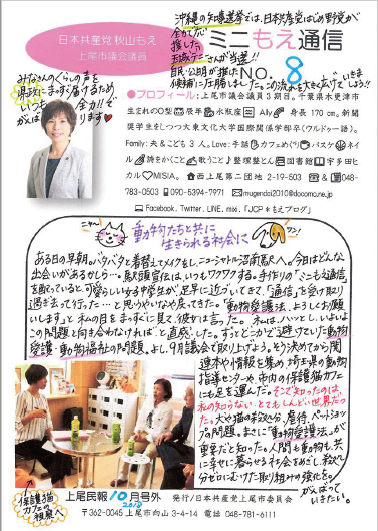 沖縄の知事選挙では、日本共産党はじめ野党が
全力で
推した
玉城デニーさんが当選!!
自民・公明が推した
候補に圧勝しました。この流れを大きく広げていきましょう!!
日本共産党 秋山もえ
上尾市議会議員
ミニもえ通信
NO. 8
みなさんのくらしの声を
県政にまっすぐ届けるため
いつも全力!!で
がんばります
●プロフィール:上尾市議会議員3期目。千葉県木更津市
生まれのO型 辰年 水瓶座 Aly 身長170cm。新聞
奨学生をしつつ大東文化大学国際関係学部卒(ウルドゥー語)。
Family:夫&こども3人。Love:手話 カフェめぐり バスケ ネイ
ル 詩をかくこと 歌うこと 整理整とん 図書館 宇多田ヒ
カル MISIA。 西上尾第二団地2-19-503 ☎&048-
783-0503 090-5394-7971 mugendai2010@docomo.ne.jp
Facebook、Twitter、LINE、mixi、「JCP*もえブログ」
ニャ〜ン
動物たちと共に
生きられる社会に
ワン!
ある日の早朝。パタパタと着替えてメイクもし、ニューシャトル沼南駅へ。今日はどんな
出会いがあるかしら…。駅頭宣伝は、いつもワクワクする。手作りの「ミニもえ通信」
を配っていると、可愛らしい女子中学生が、足早に近づいてきて、「通信」を受け取り
過ぎ去って行った…と思いやいなや戻ってきた。「動物愛護法、よろしくお願
いします」と私の目をまっすぐに見て、彼女は言った。私は、ハッとし、いよいよ
この問題と向き合わなければと直感した。ずっとどこかで避けていた動物
愛護・動物福祉の問題。よし、9月議会で取り上げよう。そう決めてから関
連本や情報を集め、埼玉県の動物
指導センターや、市内の保護猫カフェ
にも足を運んだ。そこで知ったのは、
私の知らない、とてもしんどい世界だっ
た。犬や猫の殺処分、虐待、ペットショップ
の問題。まさに「動物愛護法」が
重要だと知った。人間も動物も、共
に幸せに暮らせる社会をめざし、殺処
分ゼロにむけた取り組みの強化を。
がんばって
いきたい。
保護猫
カフェの
視察へ
上尾民報10月号外 発行/日本共産党上尾市委員会
2018
〒362-0045 上尾市向山3-4-14 電話 048-781-6111